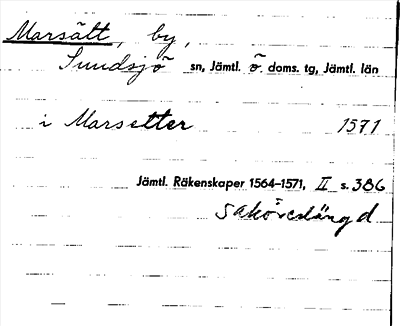 Marsätt, by,
Sundsjö sn, Jämtl. ö. doms. tg, Jämtl. län
i Marsetter 1571
Jämtl. Räkenskaper 1564–1571, II s. 386
saköreslängd